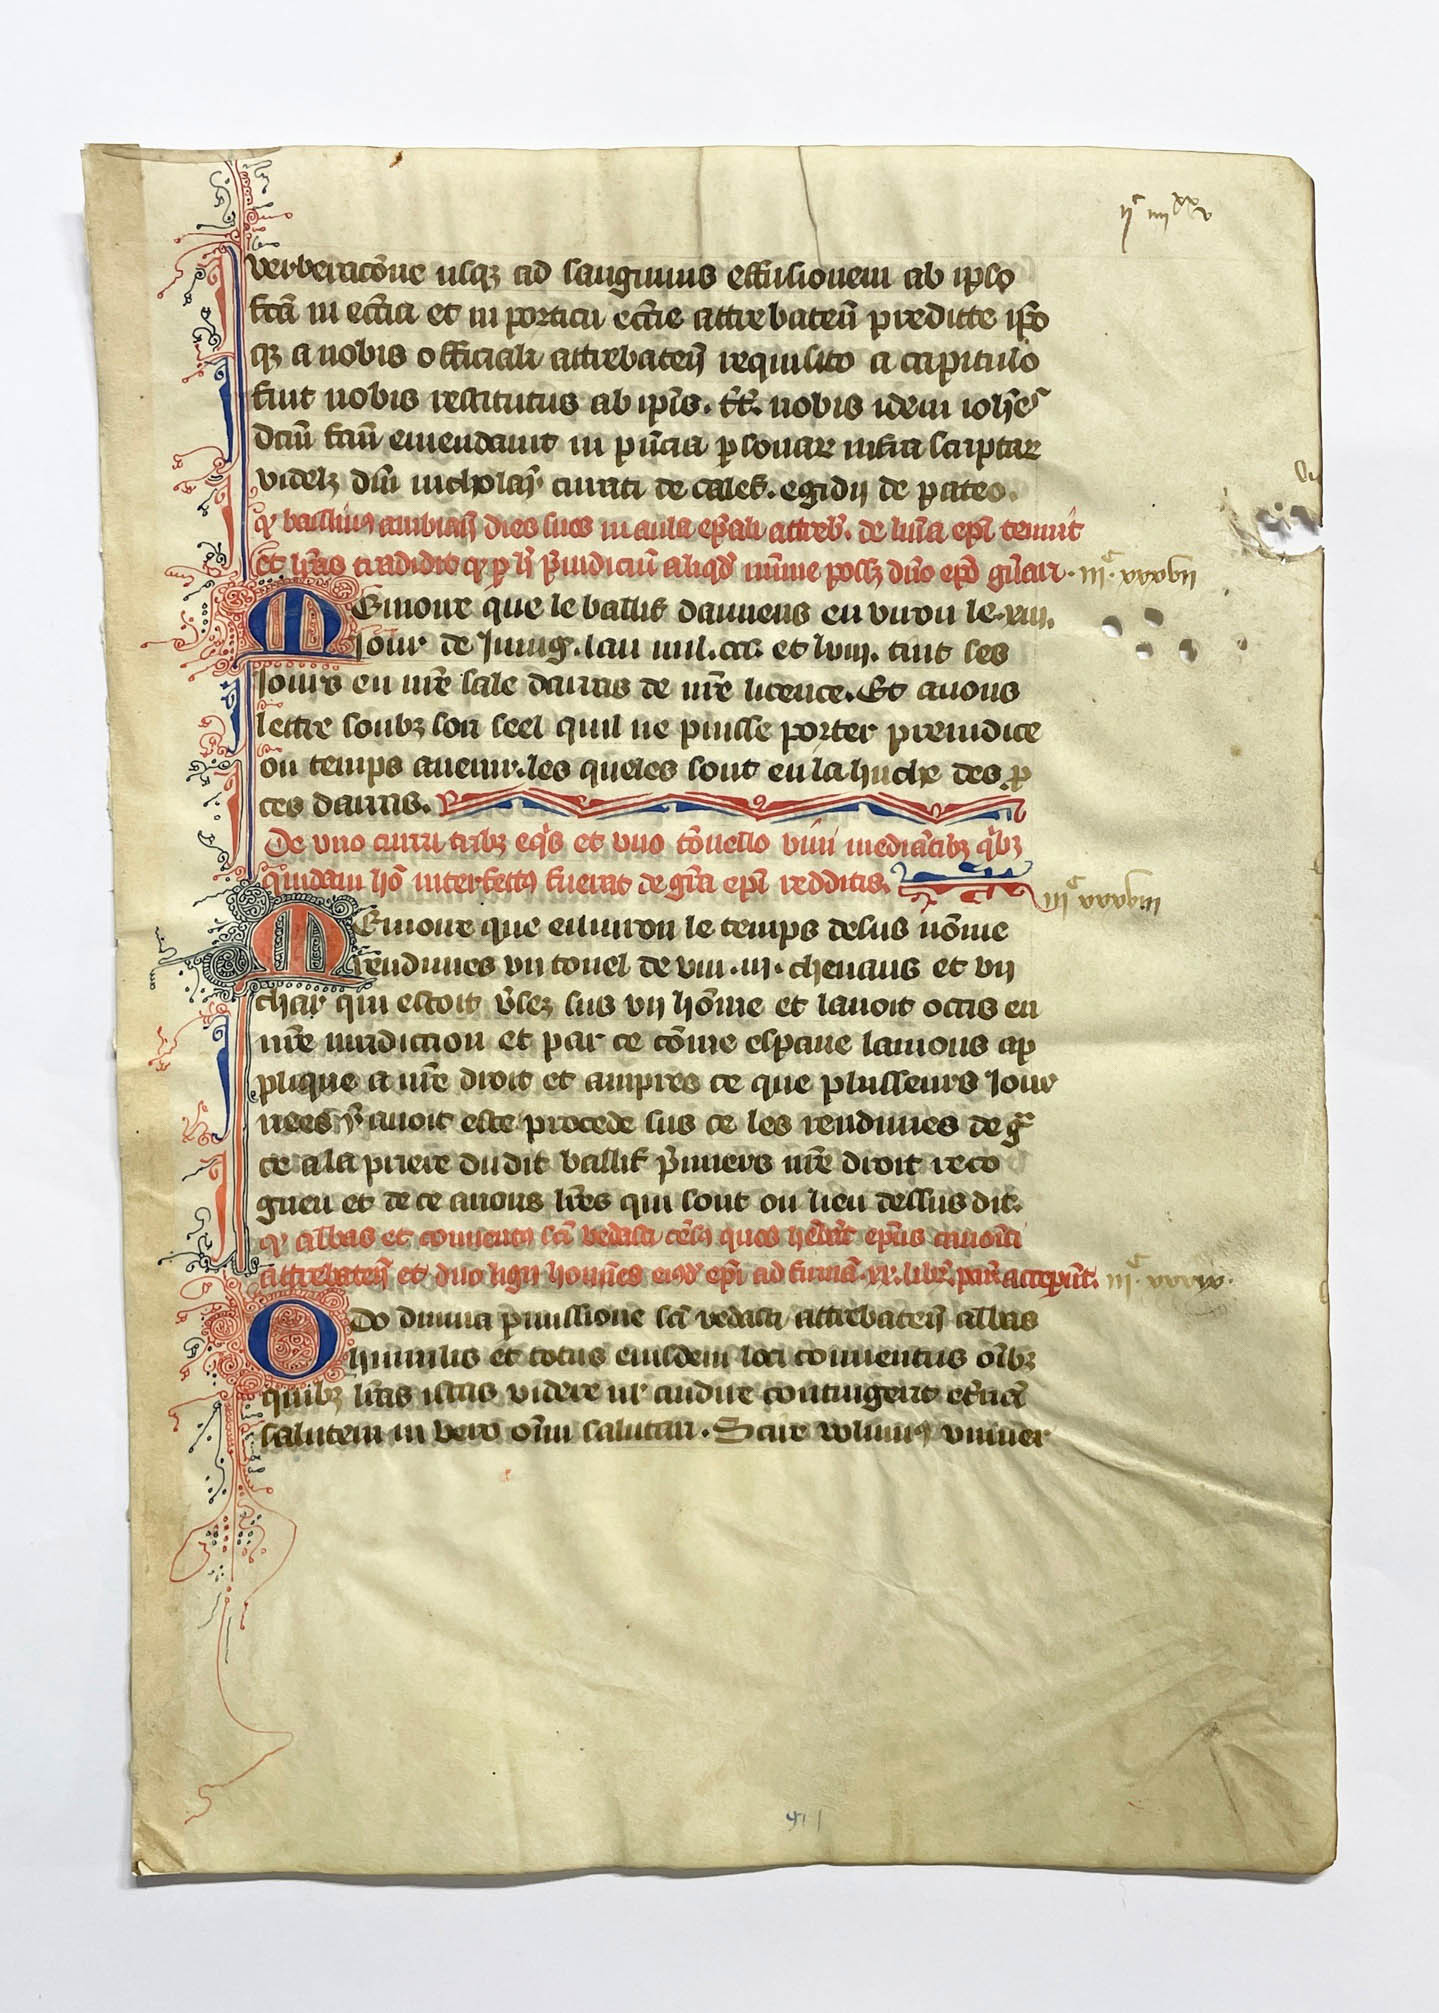 ijᶜ iiijˣˣ v
verberac̄one usqȝ ad sanguinis effusionem ab ip̄o
fc̄a in ecc̄ia et in porticu ecc̄ie attrebateñ predicte ip̄o
qȝ a nobis officiali attrebateñ requisito a capitulo
fuit nobis restitutus ab ip̄is. Et nobis idem ioh̄es
dc̄m fc̄m emendauit in p̄ncia ꝑsonar infra scriptar
videlȝ dn̄i nicholai curati de calef. egidij de prateo.
qꝫ balliuus ambiañ dies suos in aula ep̄ali attreb̄. de lic̄ia ep̄i tenuit
et lr̄as tradidit qꝫ ꝑ h̄ p̄iudiciū aliqd̄ minime possȝ dn̄o ep̄o gn̄ari. iijᶜ. xxxvij
MEmoire que le baillif damiens en viron le. viij.
Jour de Juing. lan mil. ccc. et lviij. tint les
Jours en nr̄e sale darras de nr̄e licence. Et auons
lettre soubȝ son seel quil ne puisse porter preiudice
ou temps auenir. les queles sont en la huche des ꝓ
ces darras.
De vno curru tribȝ eq̄is et vno to̅nello vini mediāntibȝ qibȝ
quidam ho̅ interfectꝰ fuerat de gr̄a ep̄i redditis. iijᶜ xxxviij
MEmoire que enuiron le temps dessus no̅me
rendimes vn tonel de vin. iij. cheuaus et vn
char qui estoit v̄sez sus vn ho̅me et lauoit occis en
nr̄e iuridiction et par ce co̅me espaue lauions ap
plique a nr̄e droit et aimpres ce que plusseurs Jour
nees y auoit este procede sus ce les rendimes de gᵃ
ce a la priere dudit baillif p̄miers nr̄e droit reco
gneu et de ce auons lr̄es qui sont ou lieu dessus dit.
qꝫ abbas et conuentꝰ sc̄i vedasti
attrebateñ et duo ho̅ines eiusd̄ ep̄i ad xx. libr̄. par̄ acceperūt. iijᶜ. xxxix.
ODo diuina ꝑmissione sc̄i vedasti attrebateñ abbas
humilis et totus eiusdem loci conuentus om̄ibȝ
quibȝ lr̄as istas videre ur̄ audire contingerit et̄nā
salutem in vero om̄i salutari. Scire volumꝰ vniuer